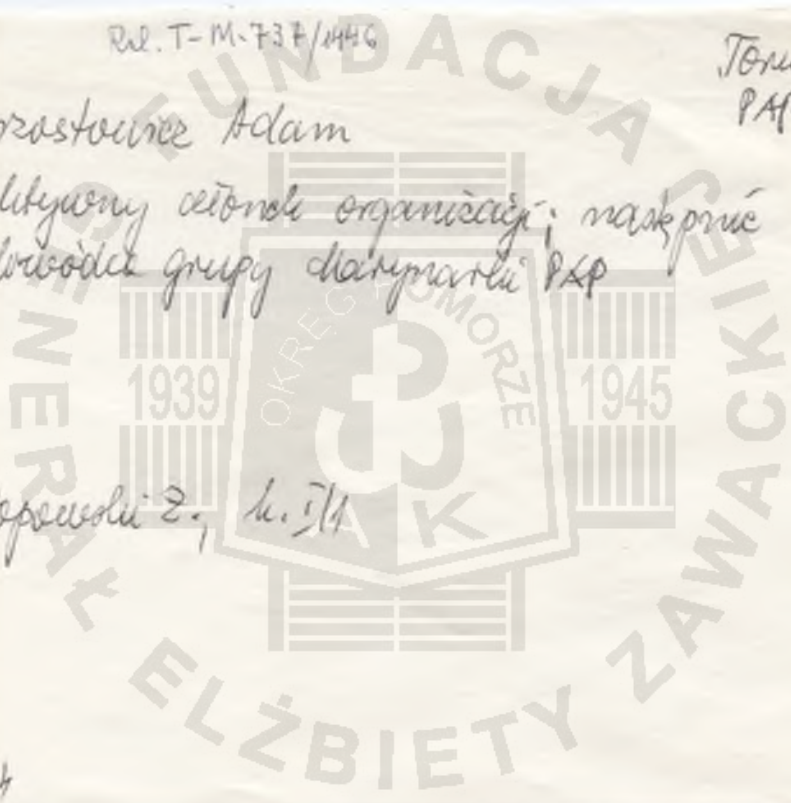 Rel. T-M-737/1446
Toru
PAP
rzostowicz Adam
ktywny członek organizacji; następnie
dowódca grupy Marynarki PAP
opowski Z., k. I/1
FUNDACJA
GENERAŁ ELŻBIETY ZAWACKIEJ
OKRĘG POMORZE
1939
1945
AK